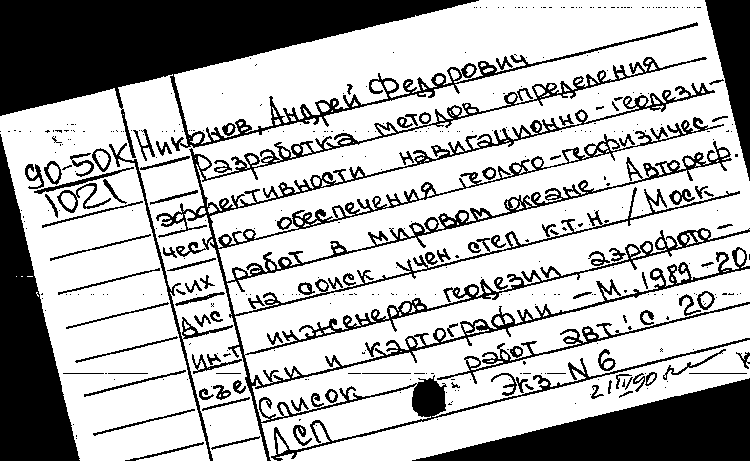 90-50К
1021
Никонов, Андрей Федорович
Разработка методов определения
эффективности навигационно-геодези-
ческого обеспечения геолого-геофизичес-
ких работ в мировом океане: Автореф.
дис. на соиск. учен. степ. к.т.н. / Моск.
ин-т инженеров геодезии, аэрофото-
съемки и картографии. - М., 1989 - 20
Список работ авт.: с. 20
ДСП Экз. N 6
21 III 90